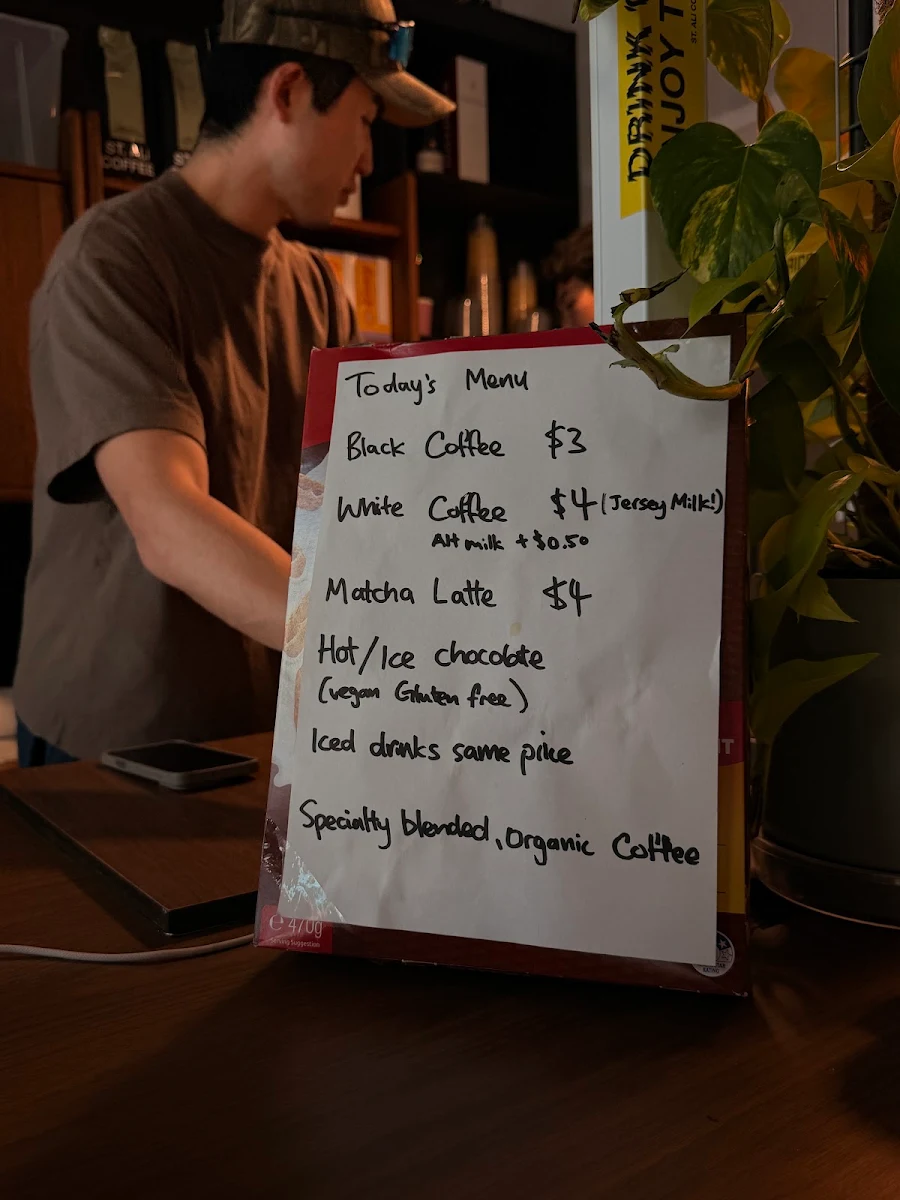 ST. ALi
COFFEE
ST.
DRINK
NJOY T
ST. ALi CO
Today's Menu
Black Coffee $3
White Coffee $4 (Jersey Milk!)
Alt milk + $0.50
Matcha Latte $4
Hot/Ice chocolate
(vegan Gluten free)
Iced drinks same price
Specialty blended, Organic Coffee
IT
e 470g
Serving Suggestion